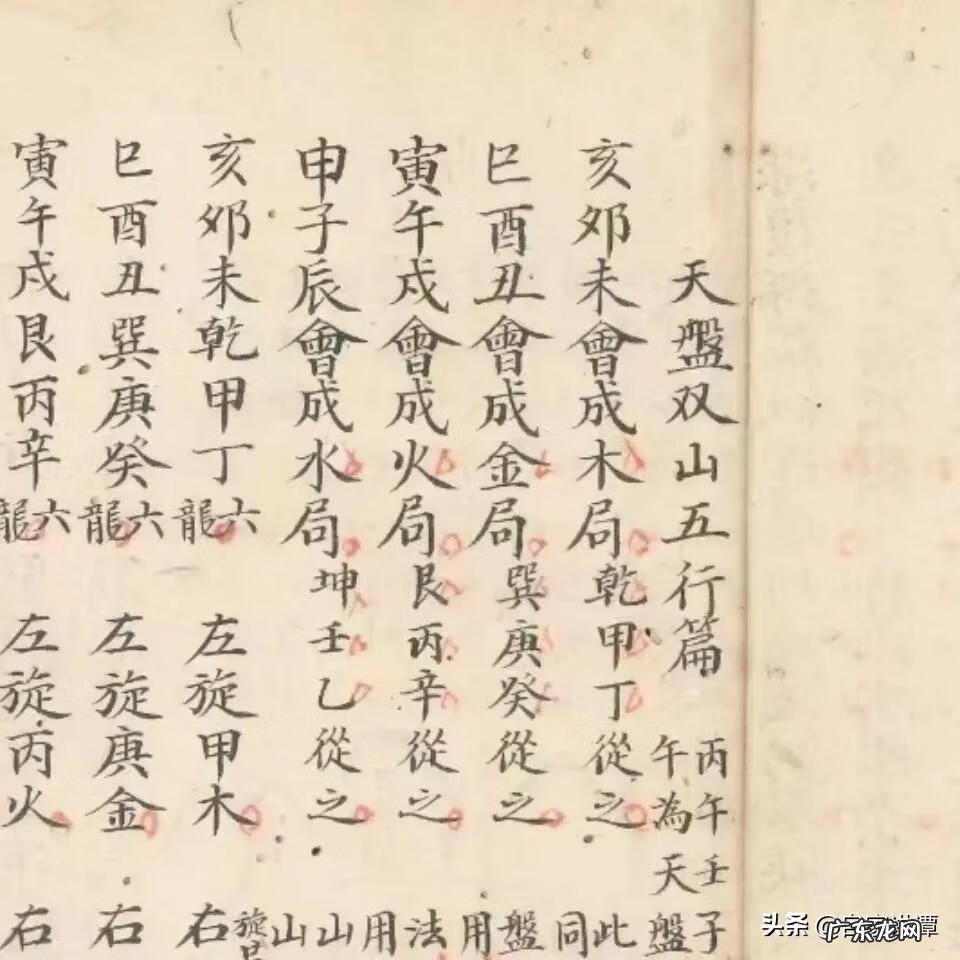 天盤双山五行篇
丙午壬子
午為天盤
亥夘未會成木局乾甲丁從之
此
同
巳酉丑會成金局巽庚癸從之
盤
用
寅午戌會成火局艮丙辛從之
法
用
申子辰會成水局坤壬乙從之
山
山
旋
亥夘未乾甲丁六龍 左旋甲木 右
巳酉丑巽庚癸六龍 左旋庚金 右
寅午戌艮丙辛六龍 左旋丙火 右
头条
广东龙网